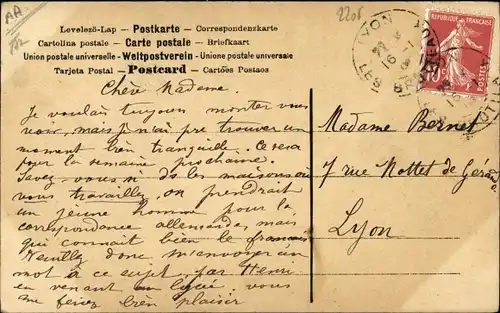 Levelező-Lap — Postkarte — Correspondenzkarte
Cartolina postale — Carte postale — Briefkaart
Union postale universelle — Weltpostverein — Unione postale universale
Tarjeta Postal — Postcard — Cartões Postaes
Chère Madame.
Je voulais toujours monter vous
voir, mais je n'ai pu trouver un
moment bien tranquille. Ce sera
pour la semaine prochaine.
Savez-vous si ds les maisons où
vous travaillez, on prendrait
un jeune homme pour la
correspondance allemande, mais
qui connait bien le français
Veuillez donc m'envoyer un
mot à ce sujet, par Henri
en venant au lycée. vous
me feriez bien plaisir
2205
LYON
16 -1
LES BROTTEAUX
10
POSTES
Madame Bornet
7 rue Mottet de Gérando
Lyon